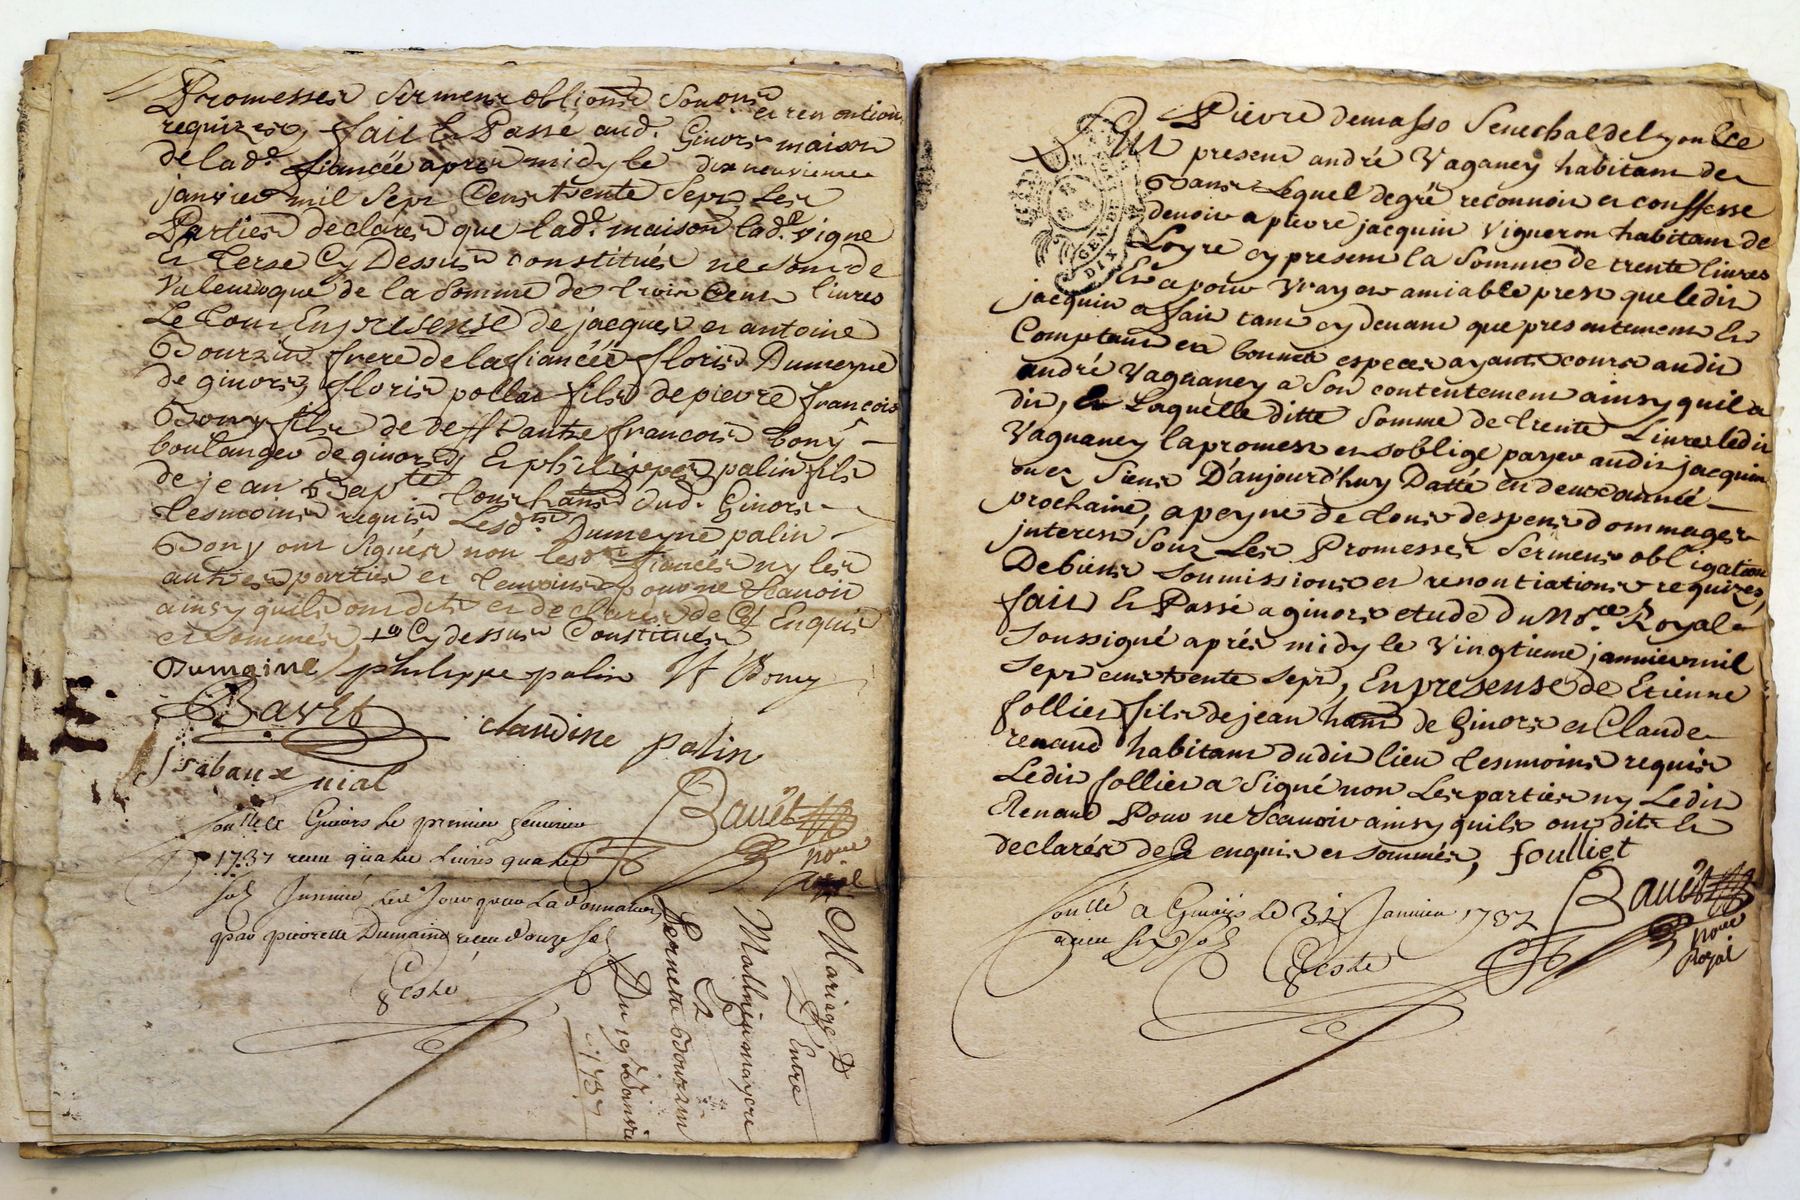 Promesses sermens oblions soumons
et renontions
requizes, fait et Passé aud. Givors maison
de lad.e fiancée apres midy le dixneuvieme
janvier mil sept Cens trente sept Les
Parties declarés que lad.e maison lad.e vigne
et terre Cy Dessus constitués ne sont de
Valeur que de la somme de trois Cens livres
Le tout En presense de jacques et antoine
frere de la fiancée floris Dumeyne
de givors, floris pollat fils de pierre françois
Bony fils de defft autre francois bony
boulanger de givors, Et philippes palin fils
de jean Bapte tous hans dud. Givors
tesmoins requis Lesd. Dumeyne palin
Bony ont signés non lesd. fiancés ny les
autres parties et temoins pour ne scavoir
ainsy quils ont dits et declarés de ce Enquis
et sommés, Cy dessus Constitués
Dumaine philippe palin Bony
Bavet claudine palin
Isabaux
nial
Bauet
no.re
Royal
Conttlé a Givors le premier fevrier
1737 receu quatre livres quatre
sols Insinué led Jour pour la donnation
par pierrette Dumaine receu douze sols
Geste
Mariage
D'Entre
Mathieu mayere
Et
Pernette Bourzin
Du 19 Janvier
1737
Pierre demasso senechal de lyon sce
Fut present andré Vaganey habitant de
Bans Lequel de gré reconnoit et confesse
devoir a pierre jacquin vigneron habitant de
Loyre cy present la somme de trente livres
Et a pour vray et amiable prest que ledit
jacquin a fait tant cy devant que presentement Et
Comptant en bonnes especes ayants cours audit
andré Vaganey a son contentement ainsy quil a
dit, Laquelle ditte somme de trente Livres ledit
Vaganey la promest et soblige payer audit jacquin
ou es siens D'aujourd'huy Datté en deux année
prochaine, a peyne de tous despens dommages
interest sous Les Promesses sermens obligation
De biens soumissions et renontiations requizes,
fait Et Passé a givors etude du No.re Royal
soussigné aprés midy le vingtieme janvier mil
sept cens trente sept, En presense de Etienne
follier fils de jean hant de Givors et Claude
renaud habitant dudit lieu tesmoins requis
Ledit follier a signé non Les parties ny Ledit
Renaud Pour ne scavoir ainsy quils ont dits et
declarés de ce enquis et sommés, foulliet
Bauet
no.re
Royal
Conttlé a Givors le 31 Janvier 1737
receu six sols
Geste
GEN. DE LYON
DIX